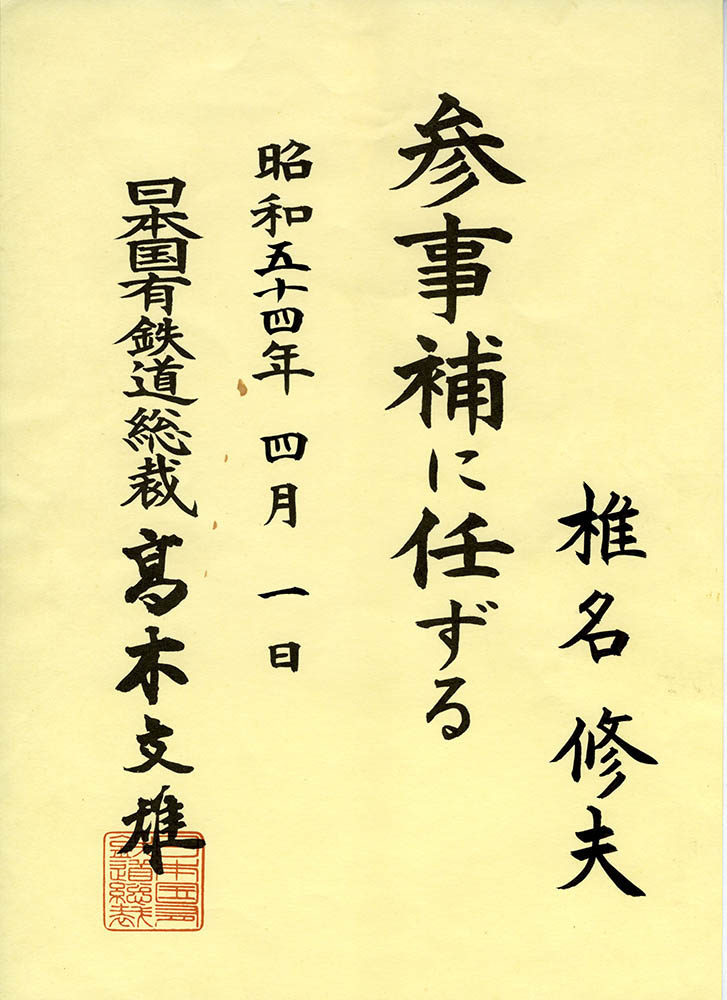 椎名修夫
参事補に任ずる
昭和五十四年 四月 一日
日本国有鉄道総裁 髙木文雄
日本国有鉄道総裁